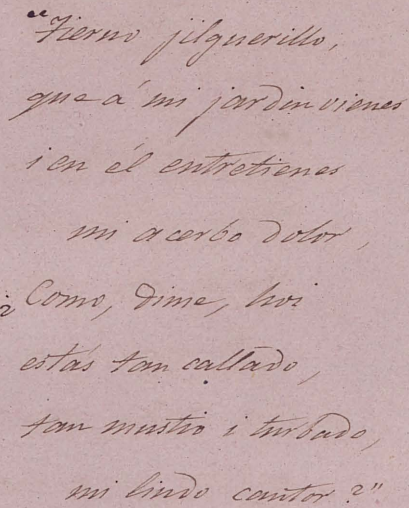 "Tierno jilguerillo,
que á mi jardin vienes
i en él entretienes
mi acerbo dolor,
¿Como, dime, hoi
estás tan callado,
tan mustio i turbado,
mi lindo cantor?"